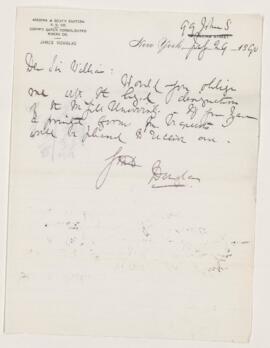 ARIZONA & SOUTH EASTERN
R. R. CO.
COPPER QUEEN CONSOLIDATED
MINING CO.
JAMES DOUGLAS
99 John S
New York, July 29 1890
Dear Sir William:
Would you oblige
me with the legal designation
of the McGill University. If you have
a printed form for bequests I
will be pleased to receive one.
Douglas